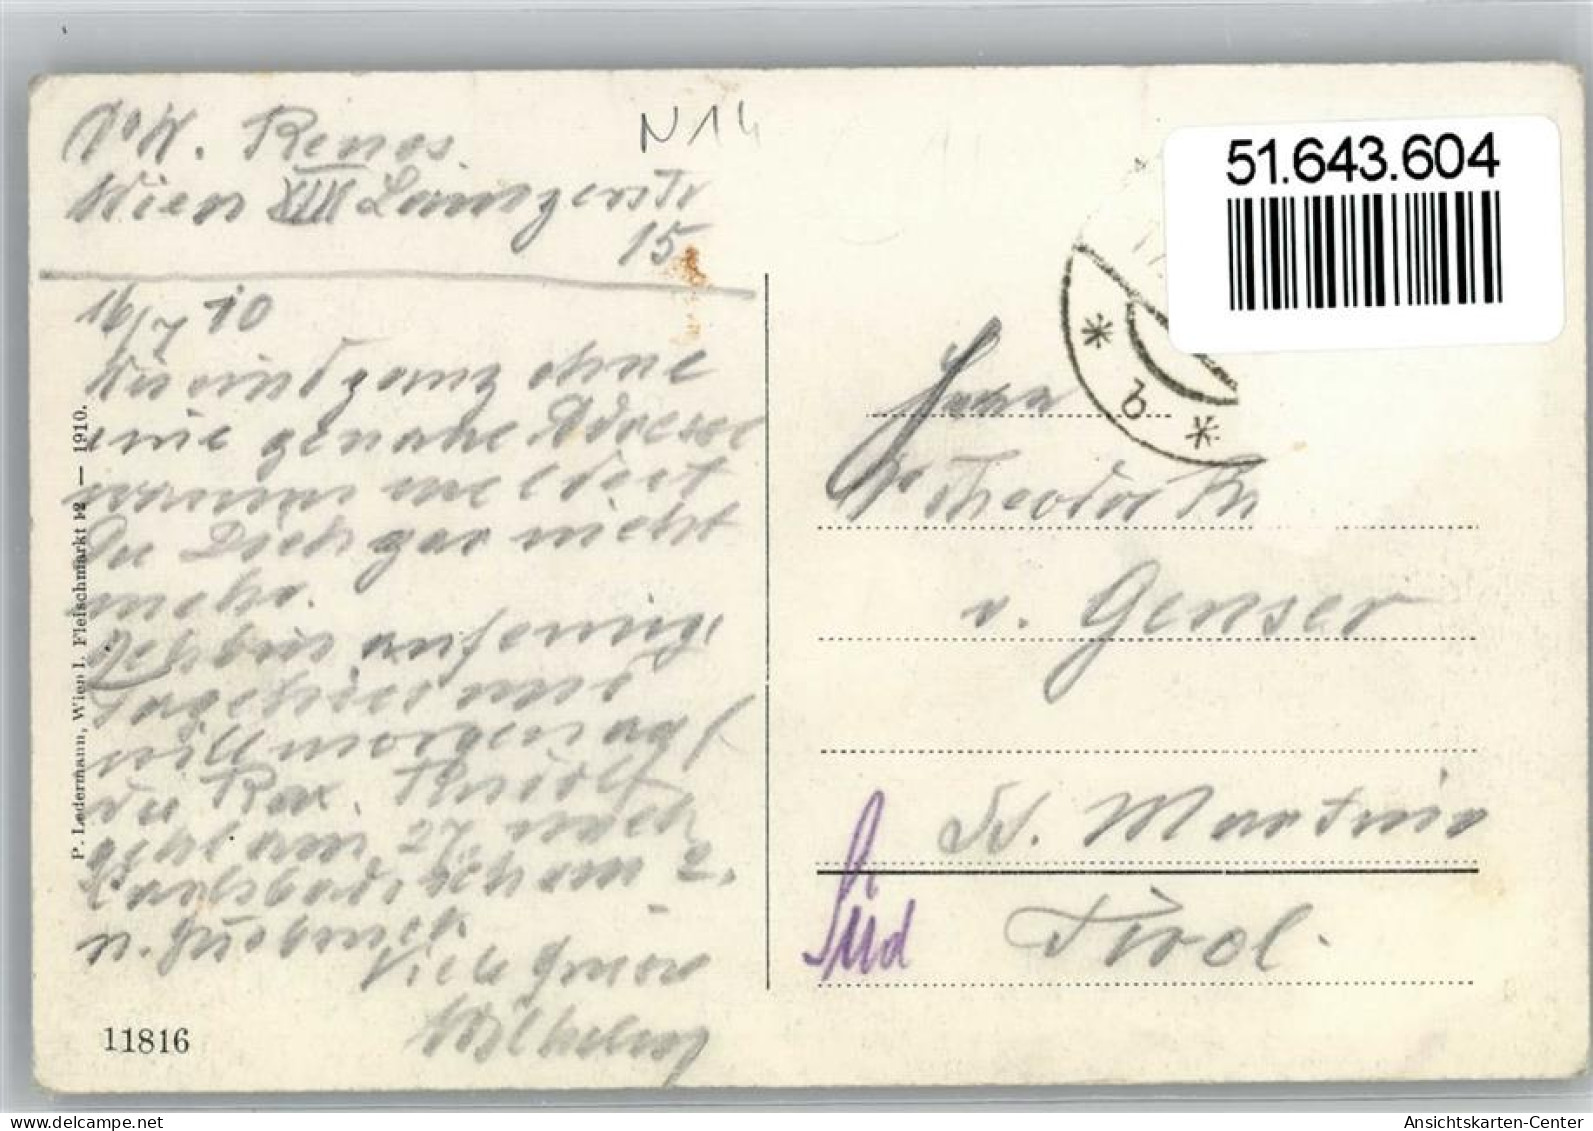 W. Renos.
Wien XIII Lainzerstr
15
N14
16/7 10
Wir sind ganz ohne
eine genaue Adresse
warum meldest
Du Dich gar nicht
mehr.
Ich bin auf einige
Tage hier und
will morgen auf
die Rax. Rudolf
geht am 27 nach
Karlsbad ich am 2.
n.
Viele Grüsse
Wilhelm
P. Ledermann, Wien I. Fleischmarkt 12 — 1910.
11816
51.643.604
* b *
Herrn
Dr Theodor Rr
v. Genser
St. Martino
Süd
Tirol.
Ansichtskarten-Center